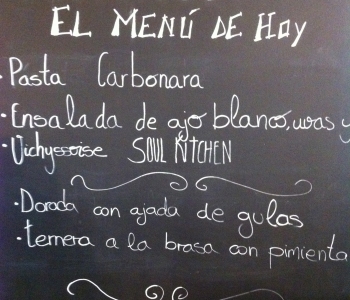 EL MENÚ DE HOY
· Pasta Carbonara
· Ensalada de ajo blanco, uvas y
· Vichyssoise SOUL KITCHEN
· Dorada con ajada de gulas
· ternera a la brasa con pimienta